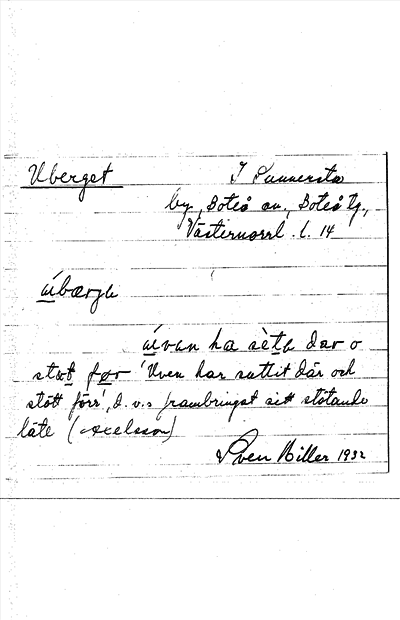 Uberget I Sunnersta
by, Boteå sn, Boteå tg,
Västernorrl. l. 14
úbærjə
úvan ha sètə dar o
støt før 'Uven har suttit där och
stött förr', d.v.s frambringat sitt stötande
läte (Axelsson)
Sven Hiller 1932